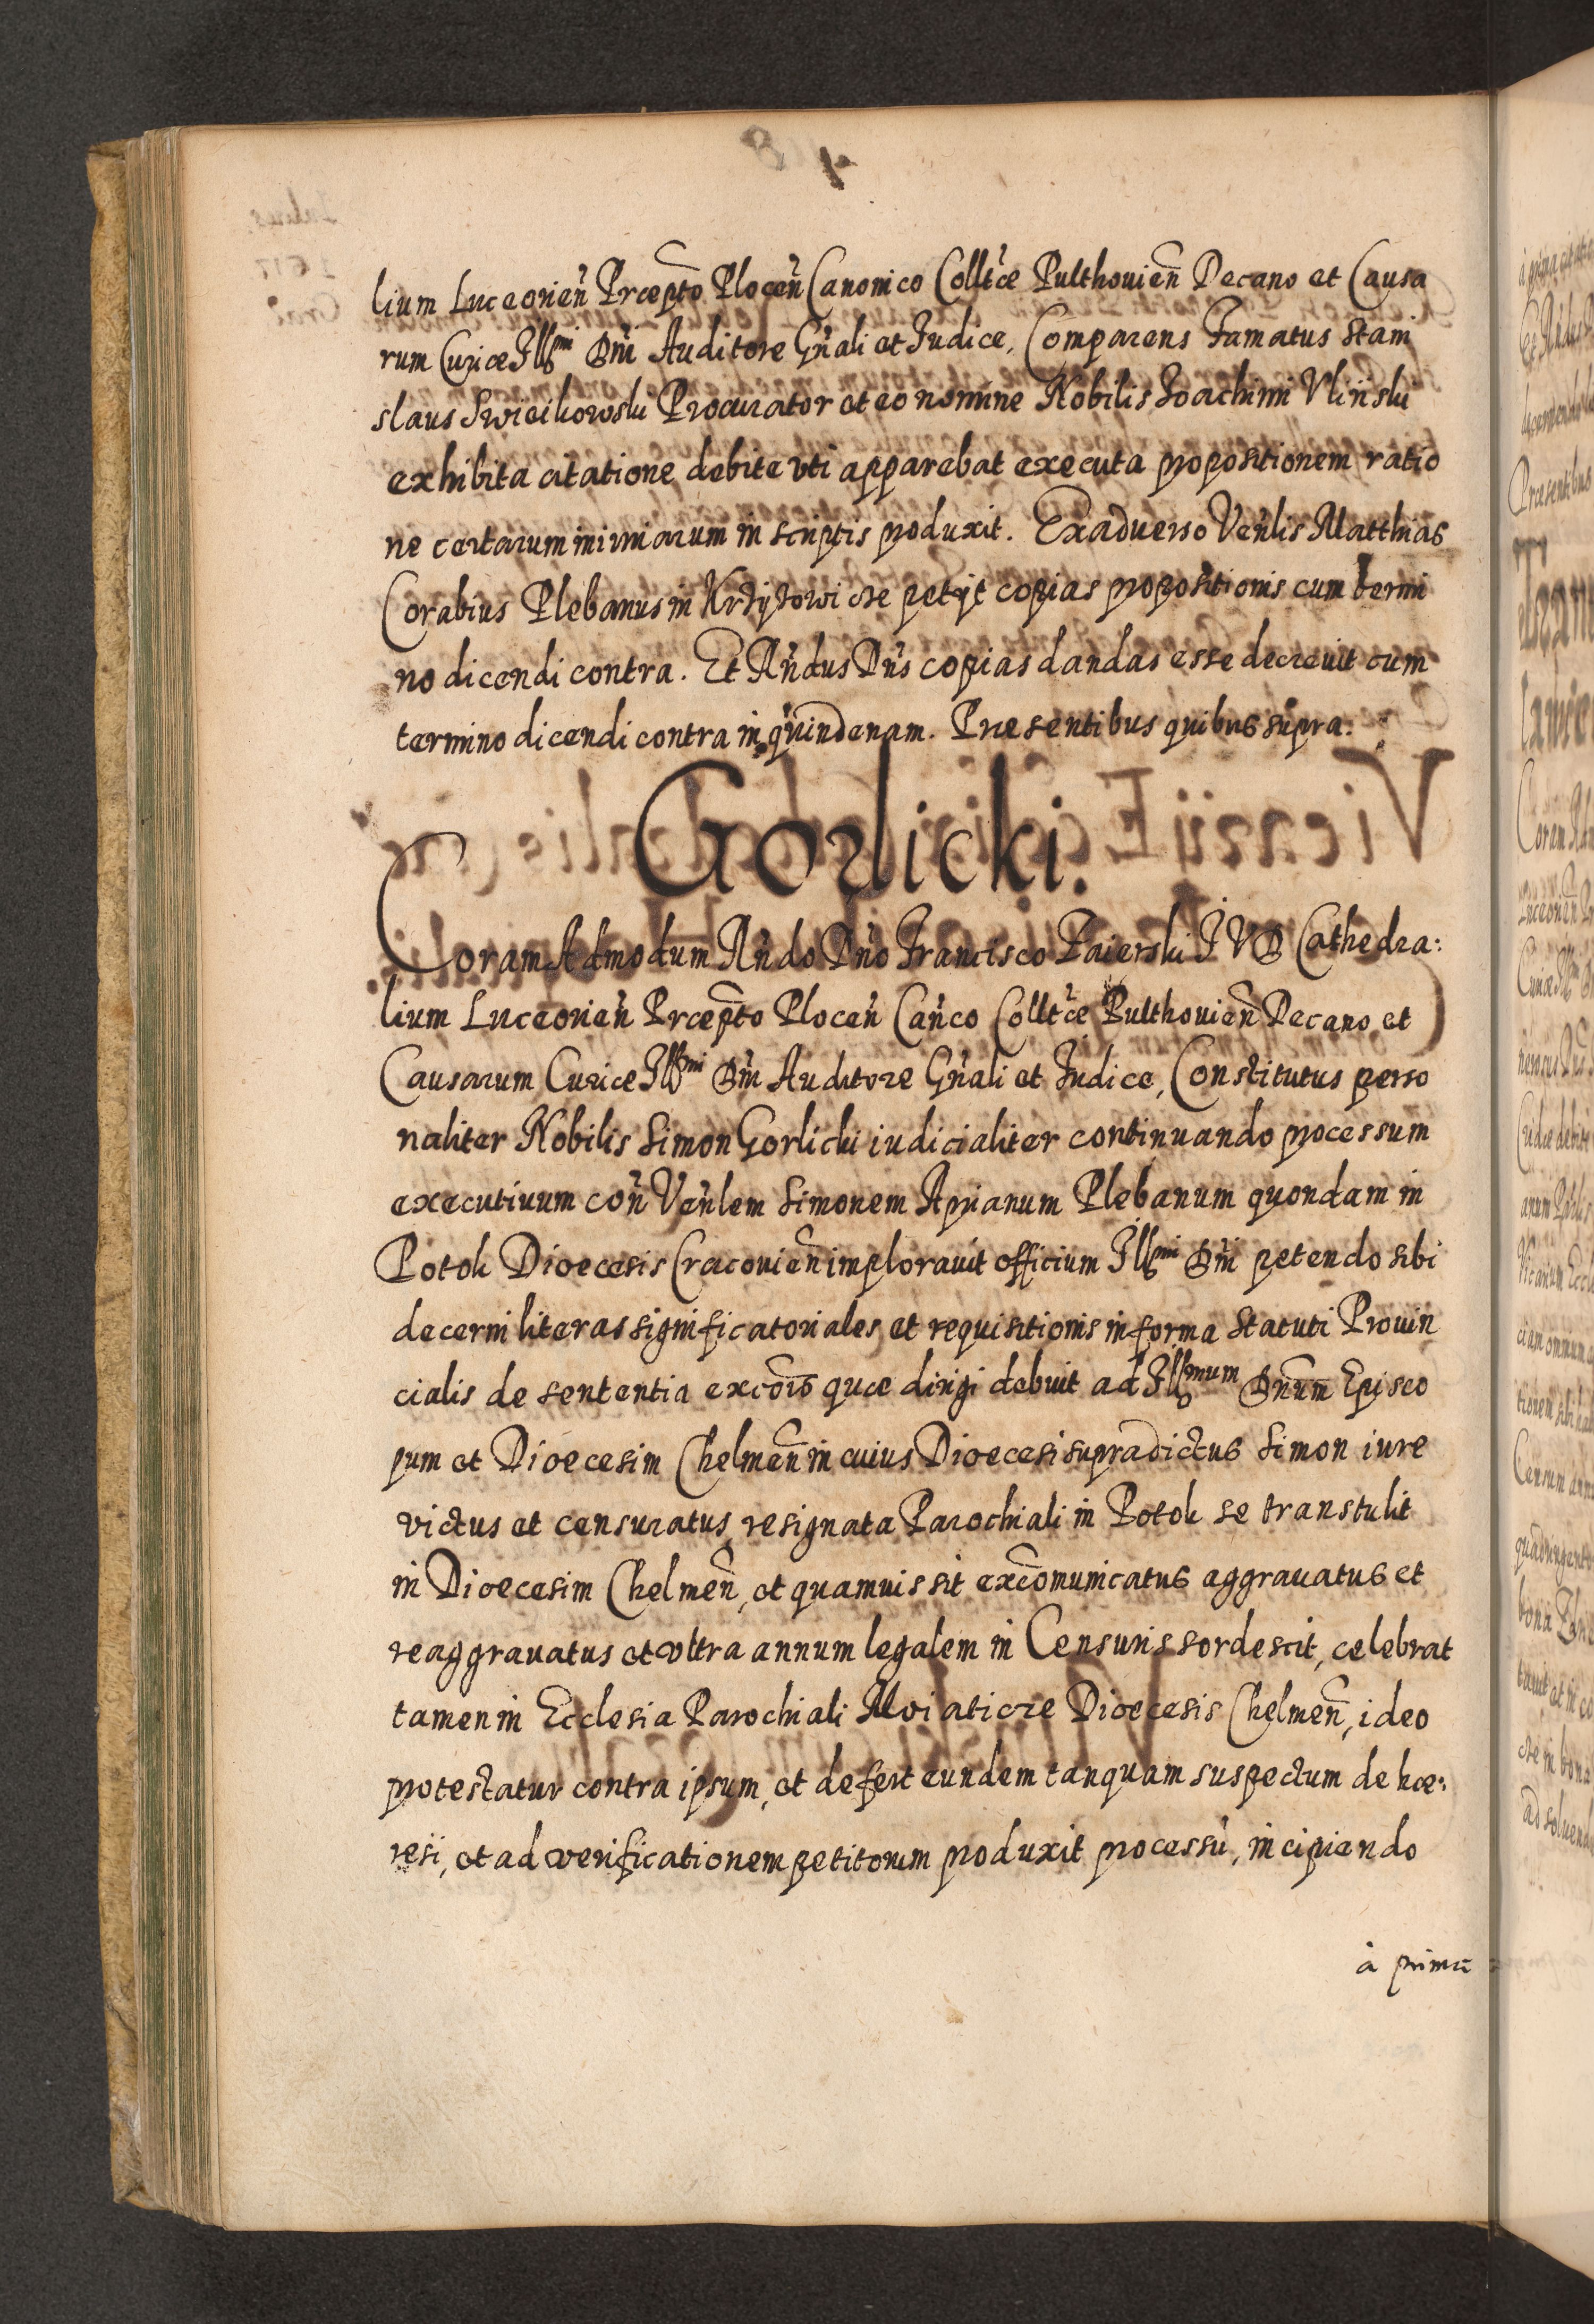 lium Luceorień Præpto Ploceń Canonico Colltæ Pulthouień Decano et Causa
rum Curiæ Illmi Dńi Auditore Gńali et Iudice, Comparens Famatus Stani
slaus Swieikowski Procurator et eo nomine Nobilis Ioachimi Vliński
exhibita citatione debite vti apparebat executa propositionem ratio
ne certarum iniuriarum in scriptis produxit. Exaduerso Veńlis Matthias
Corabius Plebanus in petijt copias propositionis cum termi
no dicendi contra. Et Ańdus Dńs copias dandas esse decreuit cum
termino dicendi contra in quindenam. Præsentibus quibus supra.
Gorlicki.
Coram Admodum Ańdo Dńo Francisco Zaierski I V D Cathedra:
lium Luceorień Præpto Ploceń Cańco Colltæ Pulthouień Decano et
Causarum Curiæ Illmi Dńi Auditore Gńali et Iudice, Constitutus perso
naliter Nobilis Simon Gorlicki iudicialiter continuando processum
executiuum coń Veńlem Simonem Aprianum Plebanum quondam in
Potok Dioecesis Cracouień implorauit officium Illmi Dńi petendo sibi
decerni literas significatoriales et requisitionis in forma Statuti Prouin
cialis de sententia excōis quæ dirigi debuit ad Illmum Dnum Episco
pum et Dioecesim Chelmeń in cuius Dioecesi supradictus Simon iure
victus et censuratus, resignata Parochiali in Potok se transtulit
in Dioecesim Chelmeń, et quamuis sit excōmunicatus aggrauatus et
reaggrauatus et vltra annum legalem in Censuris sordescit, celebrat
tamen in Ecclesia Parochiali Dioecesis Chelmeń, ideo
protestatur contra ipsum, et defert eundem tanquam suspectum de hæ:
resi, et ad verificationem petitorum produxit processū, incipiendo
à prima